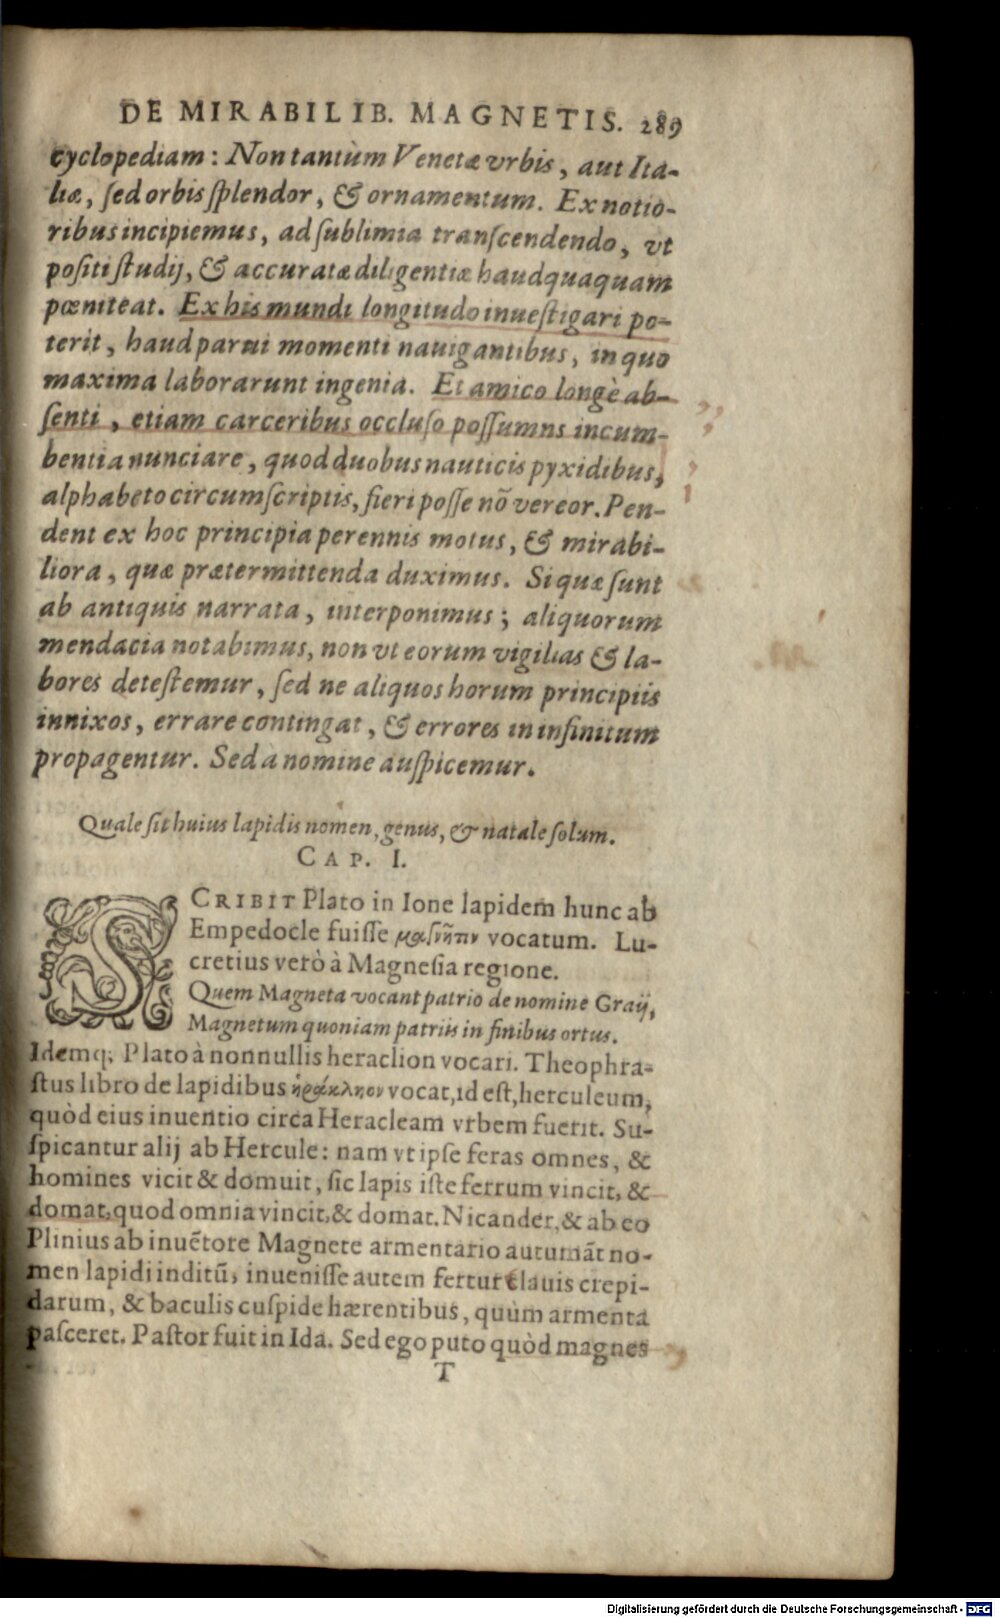 DE MIRABILIB. MAGNETIS. 289
cyclopediam: Non tantùm Venetæ vrbis, aut Ita-
liæ, ſed orbis ſplendor, & ornamentum. Ex notio-
ribus incipiemus, ad ſublimia tranſcendendo, vt
poſiti ſtudij, & accuratæ diligentiæ haudquaquam
pœniteat. Ex his mundi longitudo inueſtigari po-
terit, haud parui momenti nauigantibus, in quo
maxima laborarunt ingenia. Et amico longè ab-
ſenti, etiam carceribus occluſo poſſumns incum-
bentia nunciare, quod duobus nauticis pyxidibus,
alphabeto circumſcriptis, fieri poſſe nõ vereor. Pen-
dent ex hoc principia perennis motus, & mirabi-
liora, quæ prætermittenda duximus. Si quæ ſunt
ab antiquis narrata, interponimus; aliquorum
mendacia notabimus, non vt eorum vigilias & la-
bores deteſtemur, ſed ne aliquos horum principiis
innixos, errare contingat, & errores in infinitum
propagentur. Sed à nomine auſpicemur.
Quale ſit huius lapidis nomen, genus, & natale ſolum.
CAP. I.
SCRIBIT Plato in Ione lapidem hunc ab
Empedocle fuiſſe μαγνῆτιν vocatum. Lu-
cretius verò à Magneſia regione.
Quem Magneta vocant patrio de nomine Graij,
Magnetum quoniam patriis in finibus ortus.
Idemq; Plato à nonnullis heraclion vocari. Theophra-
ſtus libro de lapidibus ἡράκληον vocat, id eſt, herculeum,
quòd eius inuentio circa Heracleam vrbem fuerit. Su-
ſpicantur alij ab Hercule: nam vt ipſe feras omnes, &
homines vicit & domuit, ſic lapis iſte ferrum vincit, &
domat, quod omnia vincit, & domat. Nicander, & ab eo
Plinius ab inuẽtore Magnete armentario autumãt no-
men lapidi inditũ, inueniſſe autem fertur clauis crepi-
darum, & baculis cuſpide hærentibus, quùm armenta
paſceret. Paſtor fuit in Ida. Sed ego puto quòd magnes
T
Digitalisierung gefördert durch die Deutsche Forschungsgemeinschaft - DFG